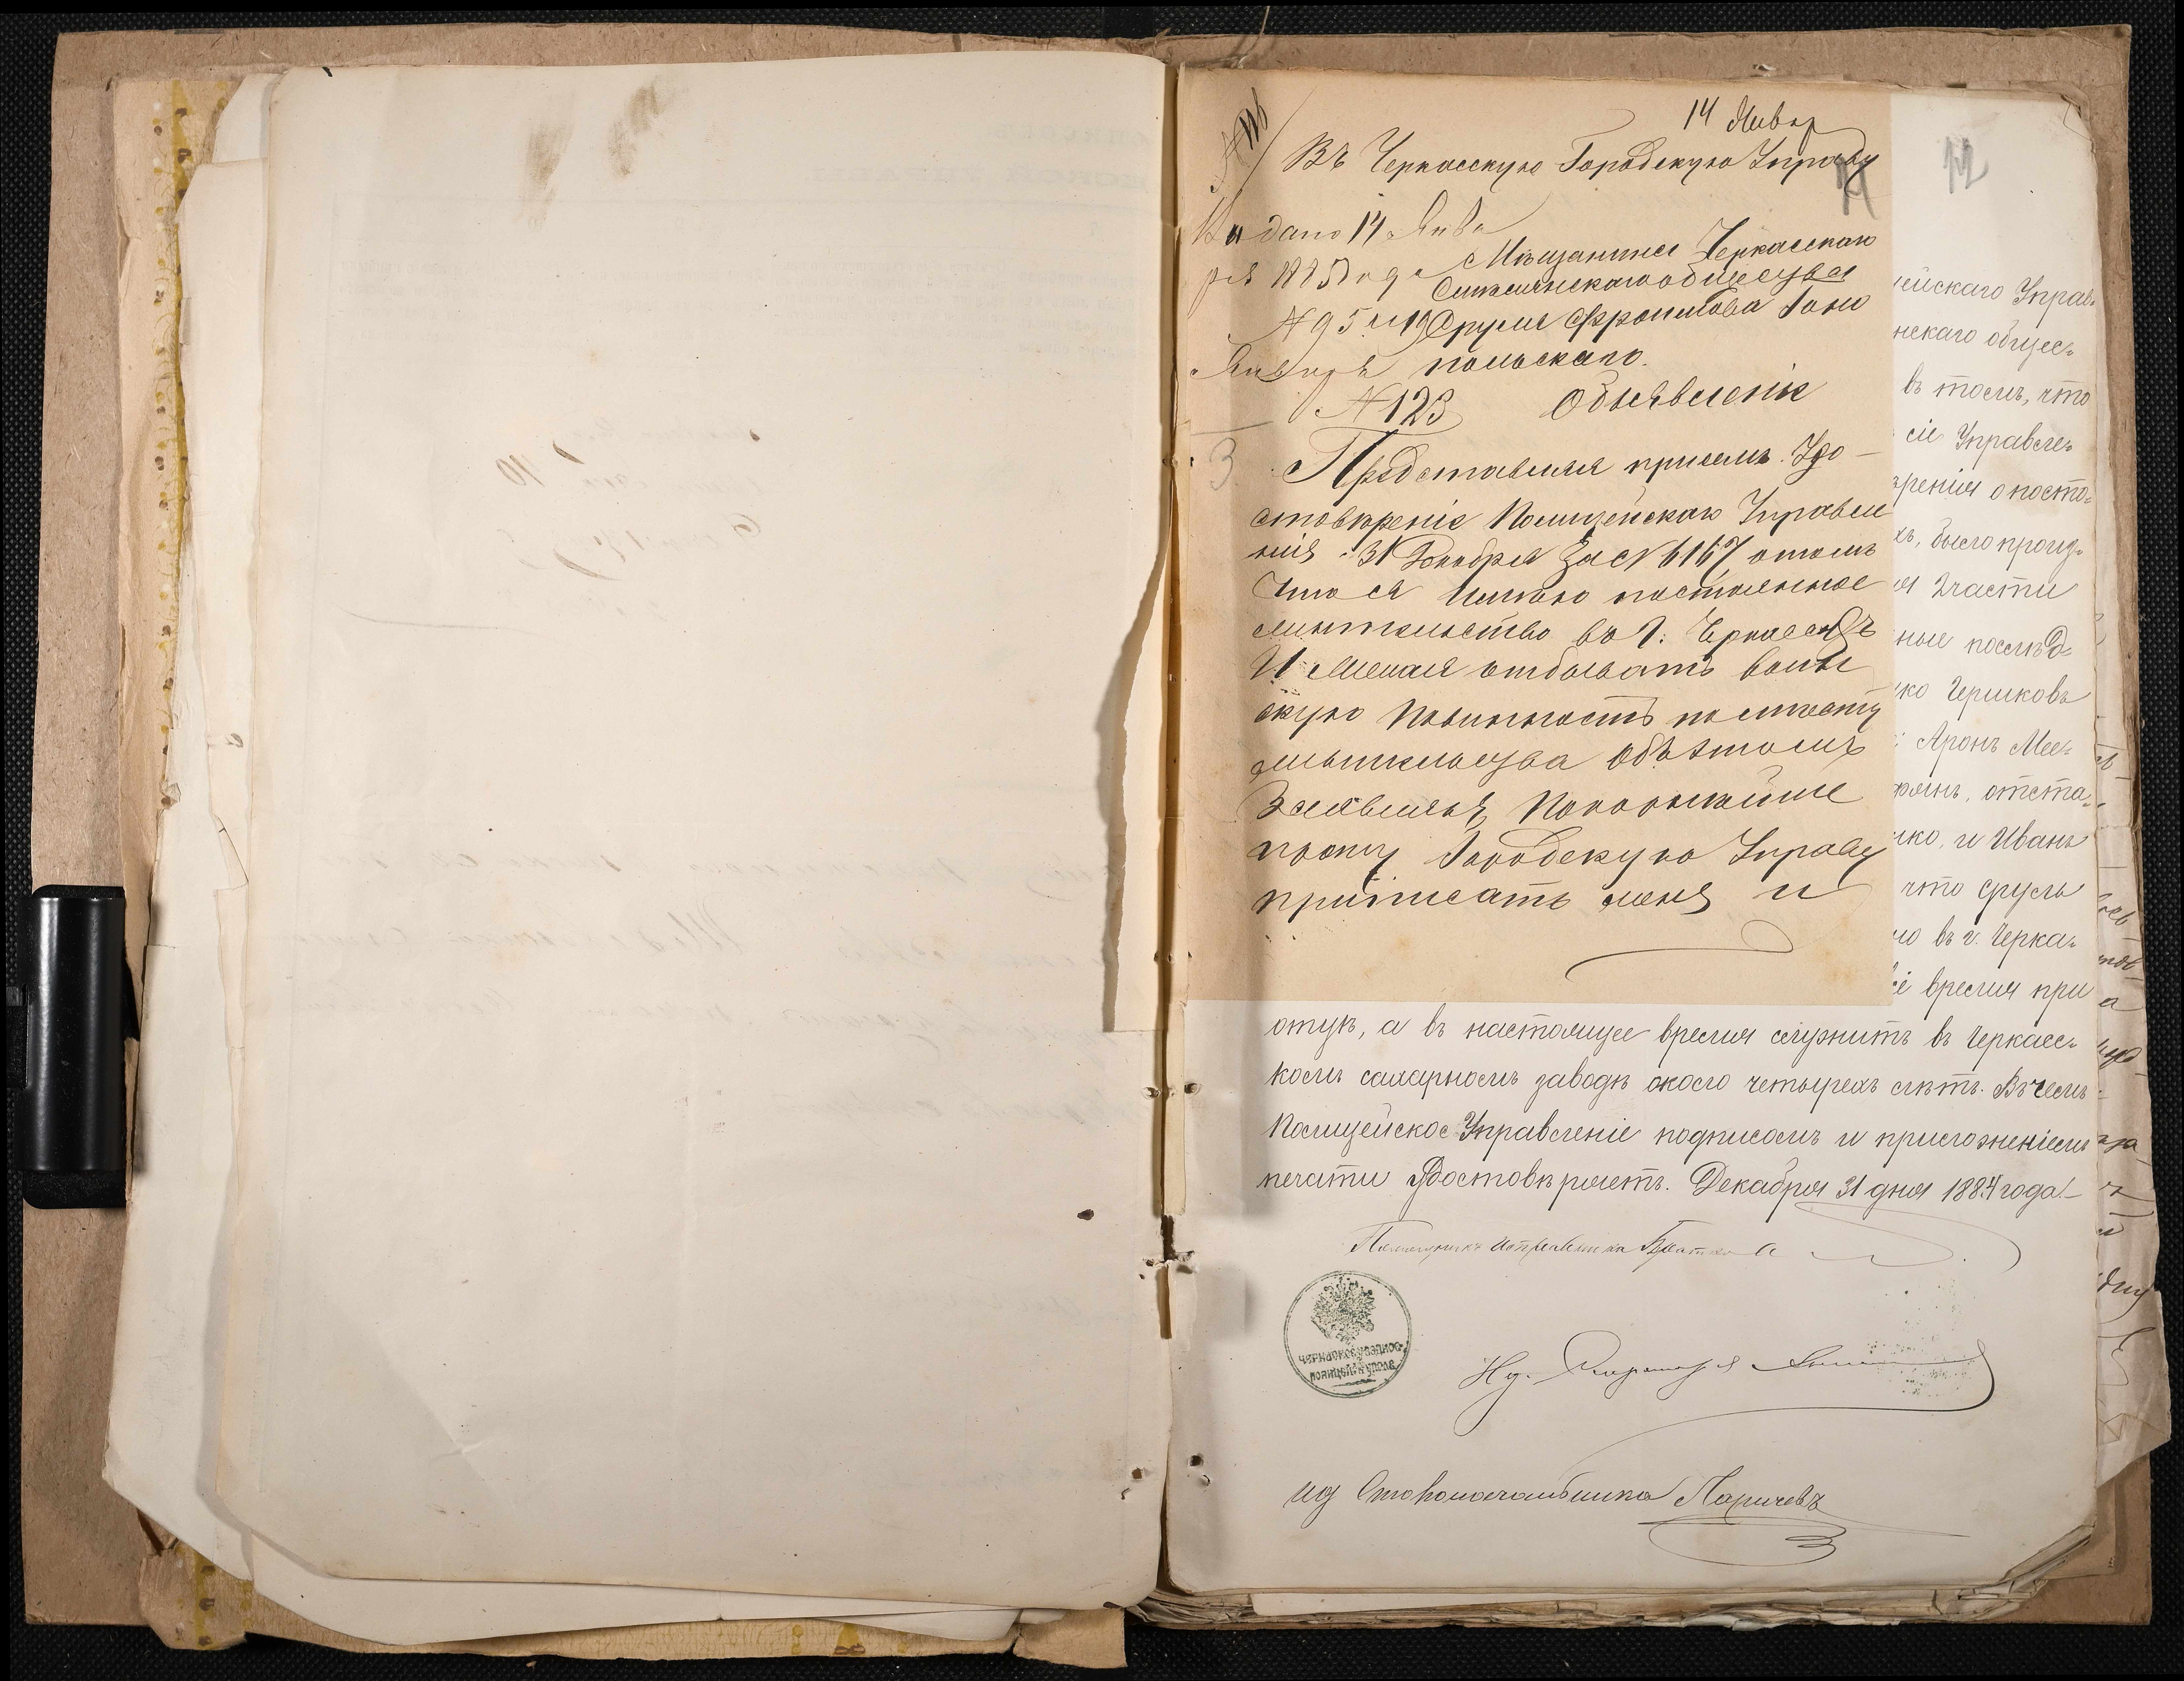 14 Январ
Въ Черкасскую Городскую Управу
12
Подано 14 Янва
ря 1885 года
Мѣщанина Черкасскаго
общества
№ 95 и 19
Сруля Фроимова Тано
Января
польскаго.
№ 123
Объявленіе
3
Представляя присемъ Удо-
стовѣреніе Полицейскаго Управле
нія 31 Декабря за № 6167 отомъ
что я имѣю постоянное
жительство въ г. Черкассахъ
И желая отбывать воин
скую повинность по мѣсту
жительства Объ этомъ
Заявляя, Покорнѣйше
прошу Городскую Управу
приписать меня и
ейскаго Управ-
нскаго общес-
въ томъ, что
сіе Управле-
ренія о посто-
хъ, было произ-
я 2 части
ные послѣд-
ко Гершковъ
Аронъ Мее-
отста-
ко, и Иванъ
что Сруль
но въ г. Черка-
сё время при
отцѣ, а въ настоящее время служитъ въ Черкасс-
комъ сахарномъ заводѣ около четырехъ лѣтъ. Въ чемъ
Полицейское Управленіе подписомъ и приложеніемъ
печати Удостовѣряетъ. Декабря 31 дня 1884 года.
Помощникъ Исправника
Ид. Секретаря
ид Столоначальника Ларичевъ